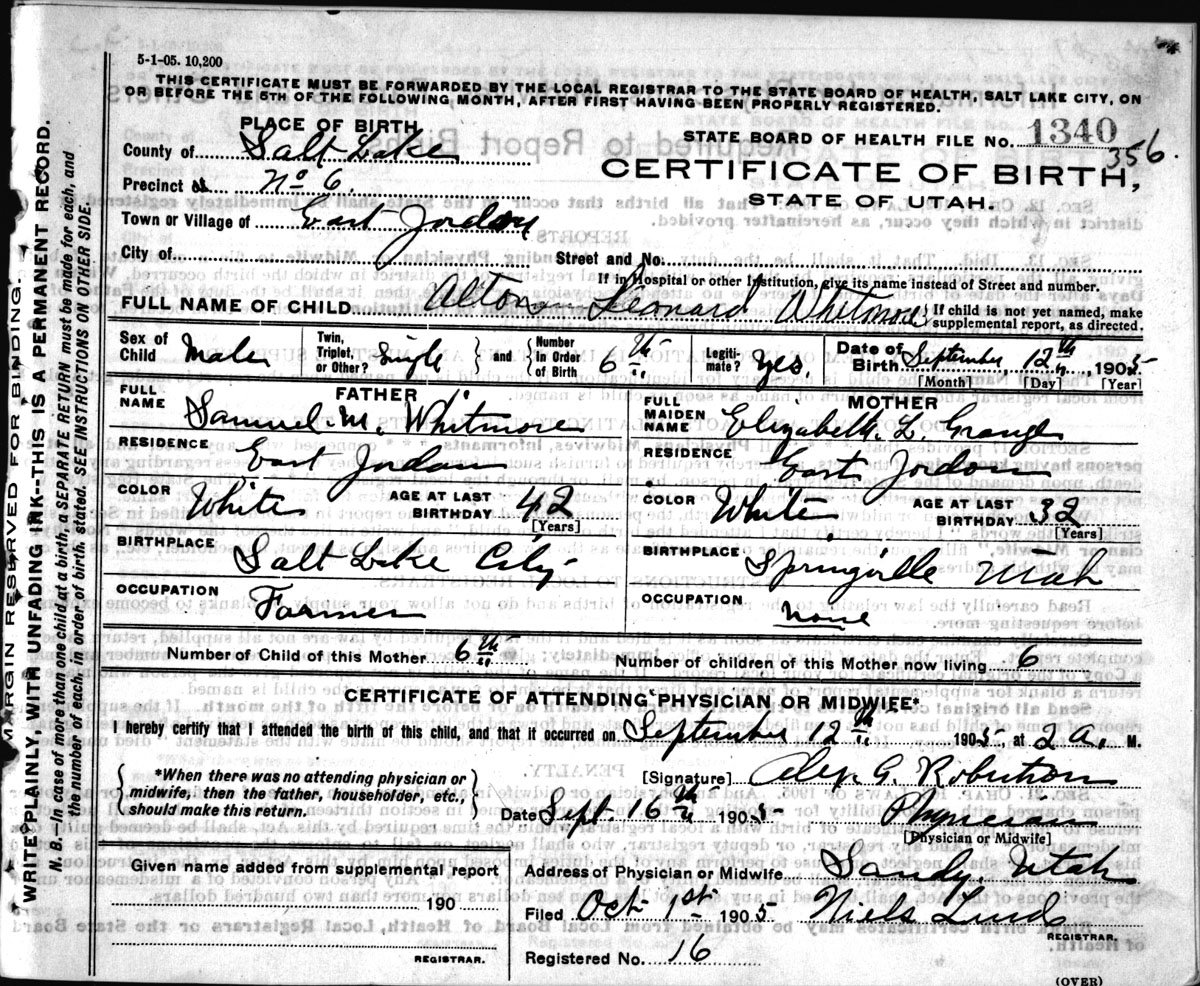 5-1-05. 10,200
THIS CERTIFICATE MUST BE FORWARDED BY THE LOCAL REGISTRAR TO THE STATE BOARD OF HEALTH, SALT LAKE CITY, ON
OR BEFORE THE 5TH OF THE FOLLOWING MONTH, AFTER FIRST HAVING BEEN PROPERLY REGISTERED.
PLACE OF BIRTH
STATE BOARD OF HEALTH FILE NO. 1340
356.
County of Salt Lake
CERTIFICATE OF BIRTH,
STATE OF UTAH.
Precinct No 6.
Town or Village of East Jordan
City of
Street and No.
If in Hospital or other Institution, give its name instead of Street and number.
FULL NAME OF CHILD Alton Leonard Whitmore
If child is not yet named, make
supplemental report, as directed.
Sex of Child Male
Twin, Triplet, or Other? Single
and
Number in Order of Birth 6th
Legiti-mate? Yes.
Date of Birth September, 12th, 1905
[Month] [Day] [Year]
FATHER
FULL NAME Samuel. M. Whitmore
RESIDENCE East Jordan
COLOR White
AGE AT LAST BIRTHDAY 42
[Years]
BIRTHPLACE Salt Lake City
OCCUPATION Farmer
MOTHER
FULL MAIDEN NAME Elizabeth. L. Granger
RESIDENCE East Jordan
COLOR White
AGE AT LAST BIRTHDAY 32
[Years]
BIRTHPLACE Springville Utah
OCCUPATION None
Number of Child of this Mother 6th
Number of children of this Mother now living 6
CERTIFICATE OF ATTENDING PHYSICIAN OR MIDWIFE*
I hereby certify that I attended the birth of this child, and that it occurred on September 12th 1905, at 2 a. M.
*When there was no attending physician or
midwife, then the father, householder, etc.,
should make this return.
[Signature] Alex. G. Robertson
Date Sept. 16th 1905 Physician
[Physician or Midwife]
Given name added from supplemental report
190
REGISTRAR.
Address of Physician or Midwife Sandy, Utah
Filed Oct 1st 1905 Niels Lind
REGISTRAR.
Registered No. 16
(OVER)
MARGIN RESERVED FOR BINDING.
WRITE PLAINLY, WITH UNFADING INK--THIS IS A PERMANENT RECORD.
N. B.—In case of more than one child at a birth, a SEPARATE RETURN must be made for each, and
the number of each, in order of birth, stated. SEE INSTRUCTIONS ON OTHER SIDE.